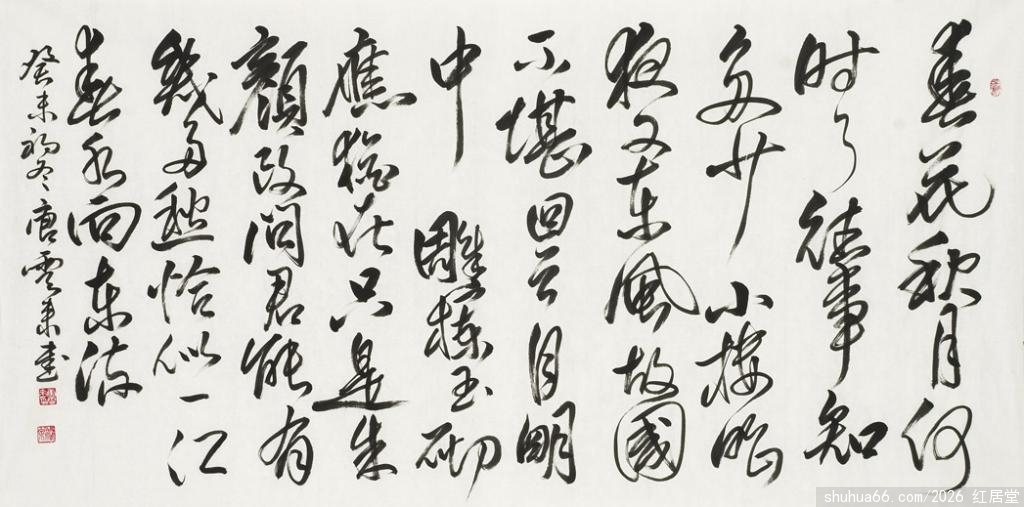 春花秋月何
时了往事知
多少小樓昨
夜又东風故國
不堪回首月明
中雕欄玉砌
應猶在只是朱
顏改問君能有
幾多愁恰似一江
春水向东流
癸未初冬唐雲来書
shuhua66.com/2026 红居堂